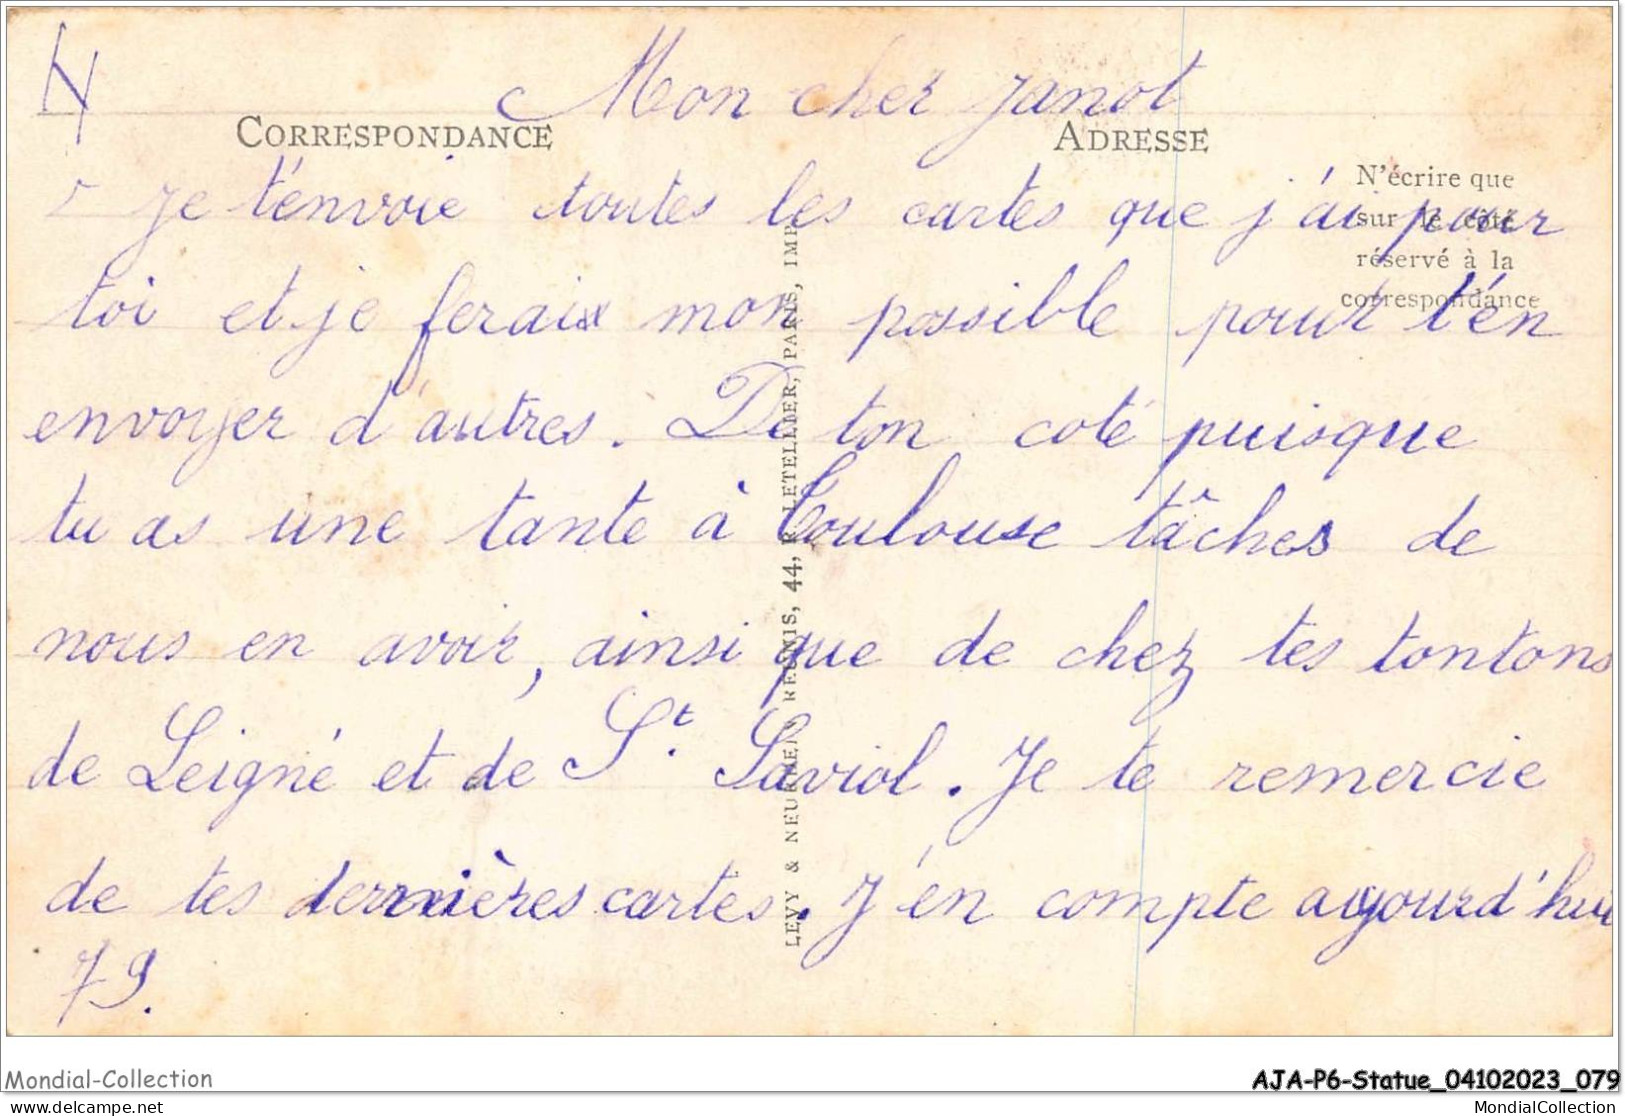 Mon cher Janot
CORRESPONDANCE
ADRESSE
N'écrire que
sur le côté
réservé à la
correspondance
Je t'envoie toutes les cartes que j'ai pour
toi et je ferais mon possible pour t'én
envoyer d'autres. De ton coté puisque
tu as une tante à Toulouse tâches de
nous en avoir, ainsi que de chez tes tontons
de Leigné et de St. Saviol. Je te remercie
de tes dernières cartes. J'én compte aujourd'hui
79.
LEVY & NEURDEIN REUNIS, 44, R. LETELLIER, PARIS, IMP.
Mondial-Collection
AJA-P6-Statue_04102023_079
delcampe.net
MondialCollection